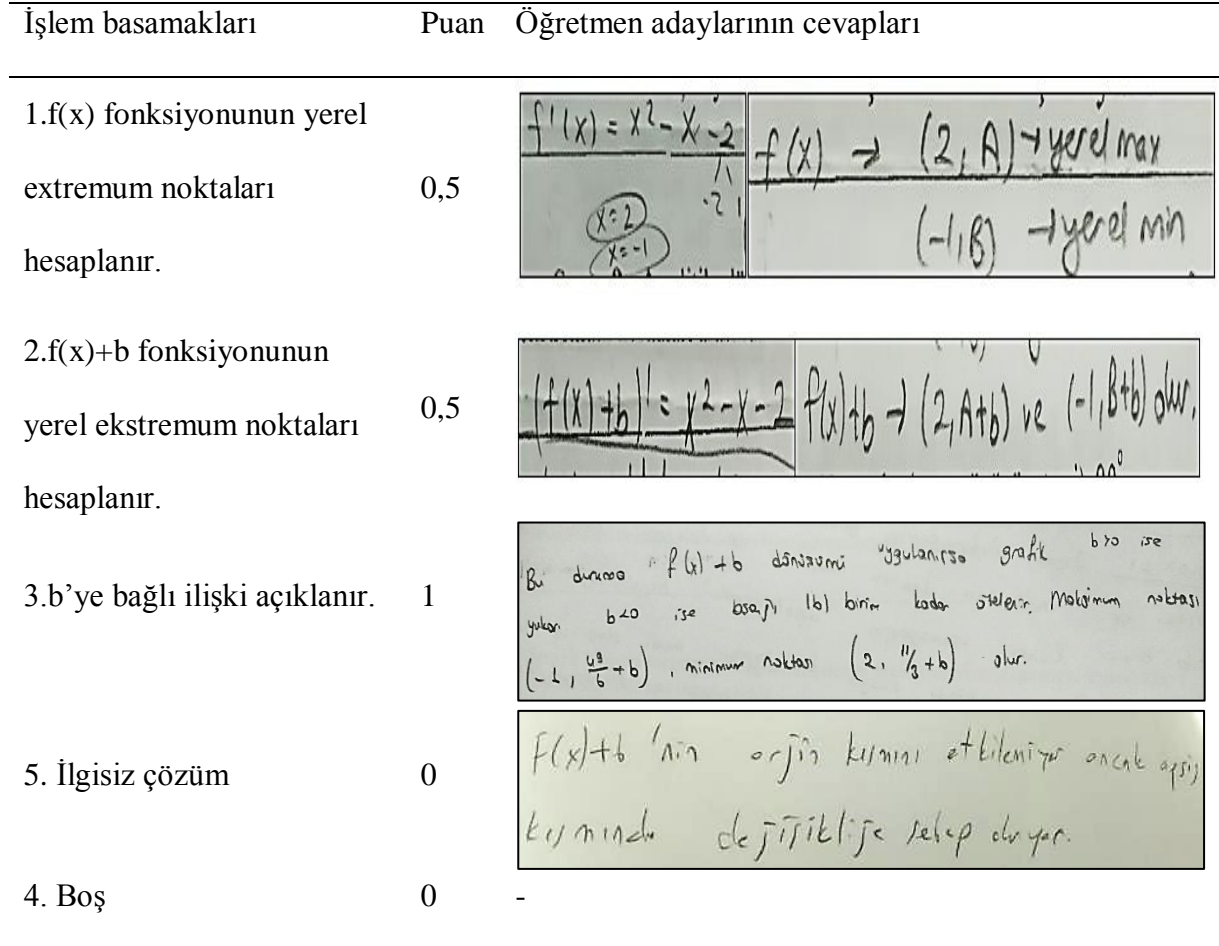 İşlem basamakları Puan Öğretmen adaylarının cevapları
1.f(x) fonksiyonunun yerel
extremum noktaları 0,5
hesaplanır.
f'(x) = x² - x - 2
-2 1
x=2
x=-1
f(x) → (2, A) → yerel max
(-1, B) → yerel min
2.f(x)+b fonksiyonunun
yerel ekstremum noktaları 0,5
hesaplanır.
(f(x)+b)' = x² - x - 2
f(x)+b → (2, A+b) ve (-1, B+b) olur.
3.b'ye bağlı ilişki açıklanır. 1
Bu durumda f(x) + b dönüşümü uygulanırsa grafik b>0 ise
yukarı b<0 ise aşağı |b| birim kadar ötelenir. Maksimum noktası
(-1, 49/6 + b), minimum noktası (2, 11/3 + b) olur.
5. İlgisiz çözüm 0
f(x)+b 'nin orjin kısmını etkilemiyor ancak apsis
kısmında değişikliğe sebep oluyor.
4. Boş 0 -